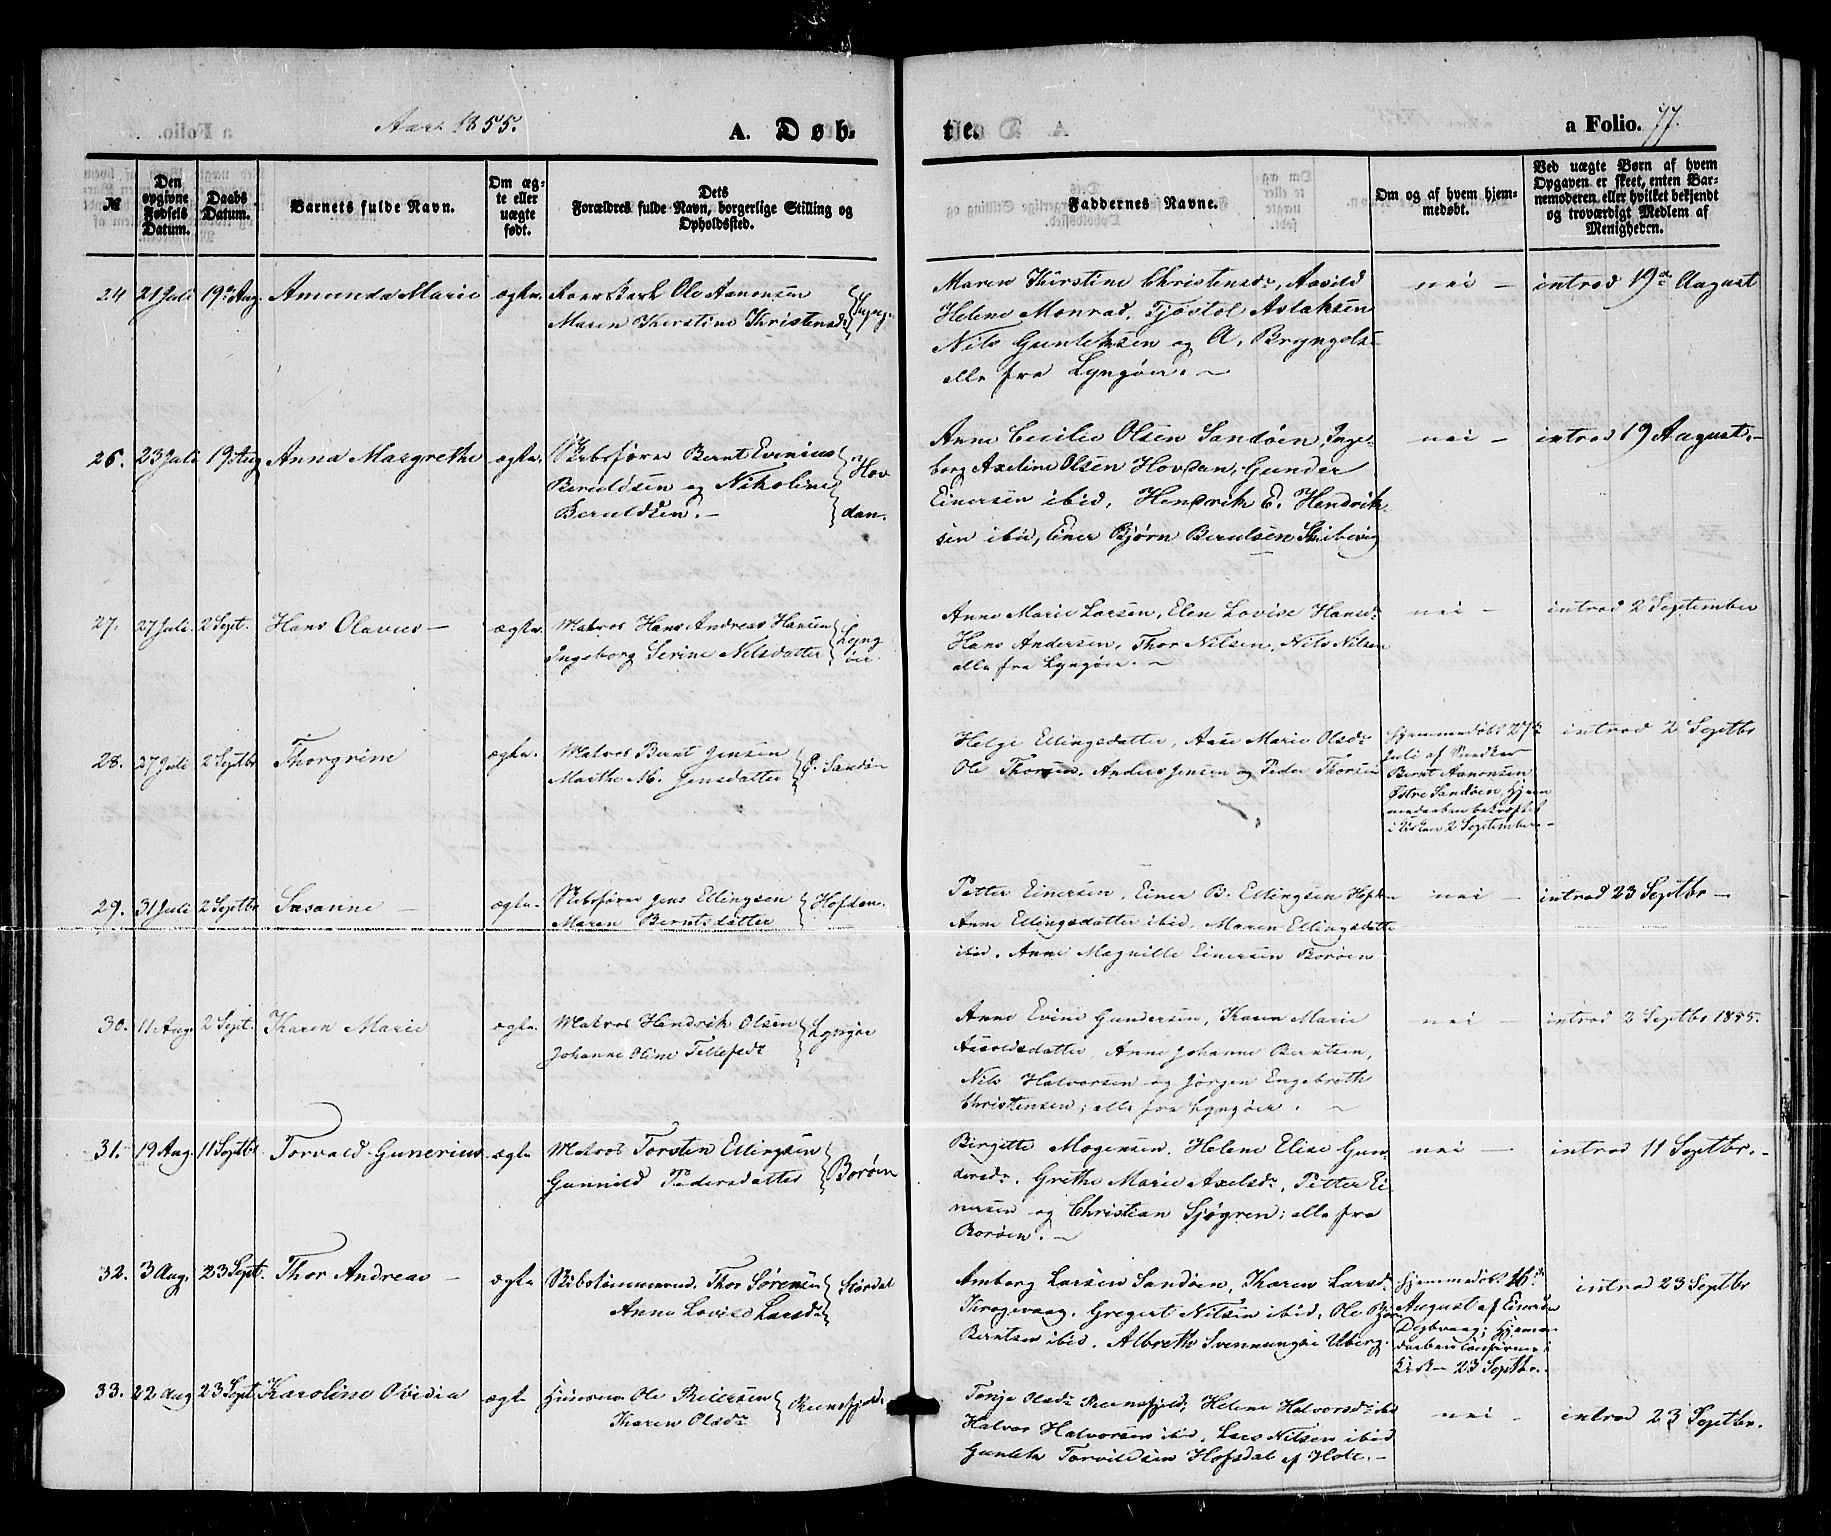 Aar 1855.
A. Døb-
te.
a Folio. 77.
№
Den opgivne Fødsels Datum.
Daabs Datum.
Barnets fulde Navn.
Om ægte eller uægte født.
Dets Forældres fulde Navn, borgerlige Stilling og Opholdssted.
Faddernes Navne.
Om og af hvem hjemmedøbt.
Ved uægte Børn af hvem Opgaven er skeet, enten Barnemoderen eller hvilket bekjendt og troværdigt Medlem af Menigheden.
24 21 Juli 19de Aug. Amunda Marie ægte.
Ole Aanonsen
Maren Kirstine Christensd.
Maren Kirstine Christensdr, Aasild
Helene Monrad, Tjøstol Aslaksen
Nils Gunleksen og A. Bryngels
alle fra Lyngøer. —
nei —
introd 19de August
26. 23 Juli 19 Aug Anna Margrethe ægte.
Skibsfører Bernt Evinius
Beruldsen og Nikoline
Beruldsen. —
Hov
dan.
Anne Cecilie Olsen Sandøen, Inge-
borg Axeline Olsen Hovdan, Gunder
Einersen ibid, Hendrik E. Hendrik
sen ibid, Einer Bjørn Berulsen Skibevig
nei —
introd 19 August. —
27. 27 Juli 2 Sept. Hans Olavus — ægte.
Matros Hans Andreas Hansen
Ingeborg Serine Nilsdatter
Lyng
øer.
Anne Marie Larsen, Elen Lovise Hansdr
Hans Andersen, Thor Nilsen, Nils Nilsen
alle fra Lyngøer. —
nei —
introd 2 September
28. 27 Juli 2 Septbr Thorgrine ægte.
Matros Bernt Jensen
Marthe M. Jensdatter
Ø. Sandøn
Helge Ellingsdatter, Aase Marie Olsdr
Ole Thorsen, Anders Jensen og Peder Thorsen
hjemmedøbt 27de
Juli af Snedker
Bernt Aanonsen
Østre Sandøen, Hjem
medaaben bekræftet
i Kirken 2 September. —
introd 2 Septbr
29. 31 Juli 2 Septbr Susanne — ægte.
Skibsfører Jens Ellingsen
Maren Berntsdatter
Hofden.
Petter Einersen, Einer B. Ellingsen Hofden
Anne Ellingsdatter ibid, Maren Ellingsdatter
ibid, Anne Magnille Einersen Borøen
nei —
introd 23 Septbr —
30. 11 Aug. 2 Sept. Karen Marie ægte.
Matros Hendrik Olsen
Johanne Oline Tellefsdr
Lyngør
Anne Evine Gundersen, Karen Marie
Aasoldsdatter, Anne Johanne Berntsen,
Nils Halvorsen og Jørgen Engebreth
Christensen; alle fra Lyngøer. —
nei —
introd 2 Septbr 1855.
31. 19 Aug. 11 Septbr Torvald Gunerius ægte
Matros Torsten Ellingsen
Gunnild Pedersdatter
Borøen
Birgitte Mogensen, Helene Elise Gun
dersdr, Grethe Marie Axelsdr, Petter Ei
nersen og Christian Sjøgren; alle fra
Borøen. —
nei —
introd 11 Septbr. —
32. 3 Aug. 23 Sept. Thor Andreas — ægte
Skibstømmermd. Thor Sørensen
Anne Lovise Larsdr
Størdal
Amborg Larsen Sandøen, Karen Larsdr
Krogevaag, Gregert Nilsen ibid, Ole
Berntsen ibid, Albreth Svennungsen Uberg.
hjemmedøbt 16de
August af Einersen
Dybvaag; Hjemme
daaben confirmeret i
Kirken 23 Septbr.
introd 23 Septbr
33. 22 Aug 23 Sept. Karoline Ovidia ægte
Huusm. Ole Reiersen
Karen Olsdr
Reinsfjeld.
Tonje Olsdr Reinsfjeld, Helene Halvorsdr ibid
Halvor Halvorsen ibid, Lars Nilsen ibid
Gunlek Torvildsen Hofsdal af Holt. —
nei —
introd 23 Septbr.